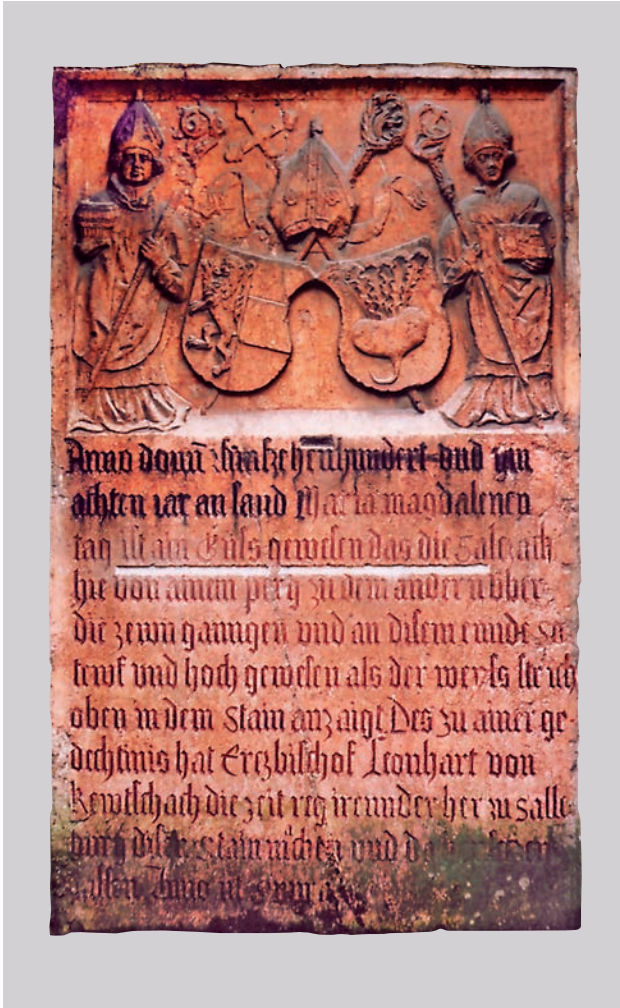 Anno domī fünfzehenhundert vnd im
achten iar an sand Maria magdalenen
tag ist ain Güss gewesen das die Salczach
hie von ainem perg zu dem ander vbber
die zewn ganngen vnd an disem ennde so
tewf vnd hoch gewesen als der weyss strich
oben in dem Stain anzaigt Des zu ainer ge
dechtinis hat Erczbischof Leonhart von
Kewtschach die zeit regirennder her zu Salcz
burg disen Stain machen vnd
Anno